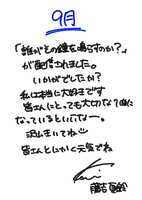 9月
「誰がその鐘を鳴らすのか?」
が配信されました。
いかがでしたか?
私は本当に大好きです
皆さんにとっても大切な1曲に
なっているといいなー。
沢山きいてね
皆さんとにかく元気でね